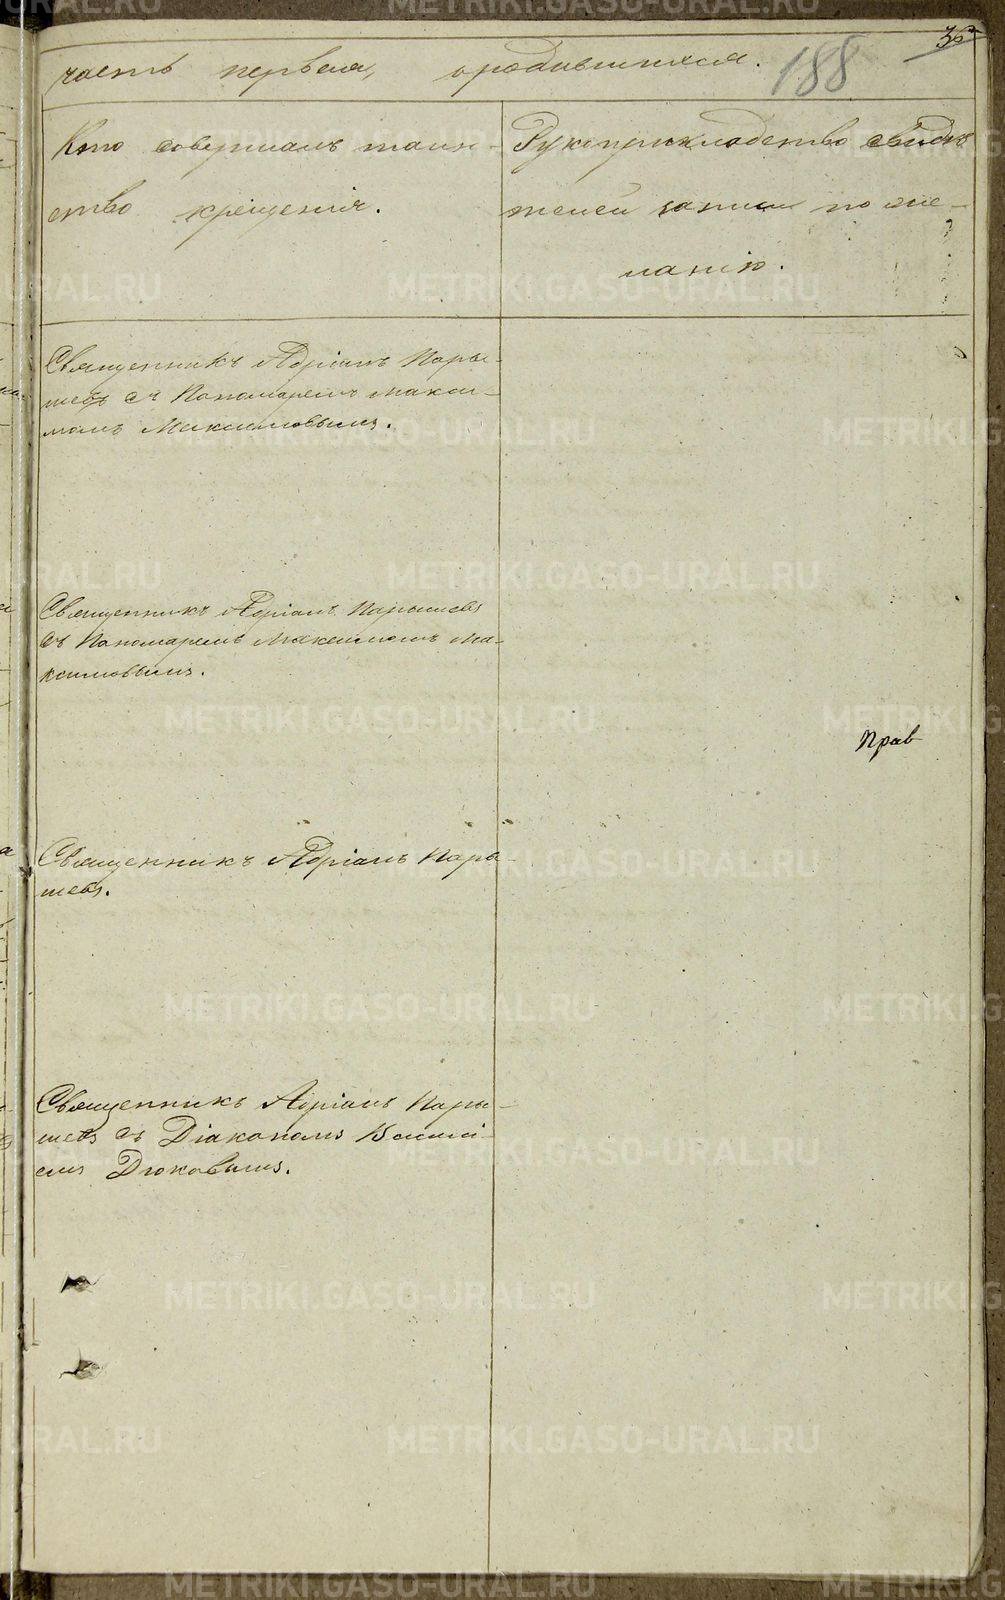 часть первая, о родившихся. 188
36
Кто совершалъ таин-
ство крещенія.
Рукоприкладство свидѣ
телей записи по же-
ланію.
Священникъ Адріанъ Пары-
шевъ съ Пономаремъ Макси-
момъ Максимовымъ.
Священникъ Адріанъ Парышевъ
съ Пономаремъ Максимомъ Ма-
ксимовымъ.
Прав
Священникъ Адріанъ Пары-
шевъ.
Священникъ Адріанъ Пары-
шевъ съ Діакономъ Васılі-
емъ Дюковымъ.
METRIKI.GASO-URAL.RU